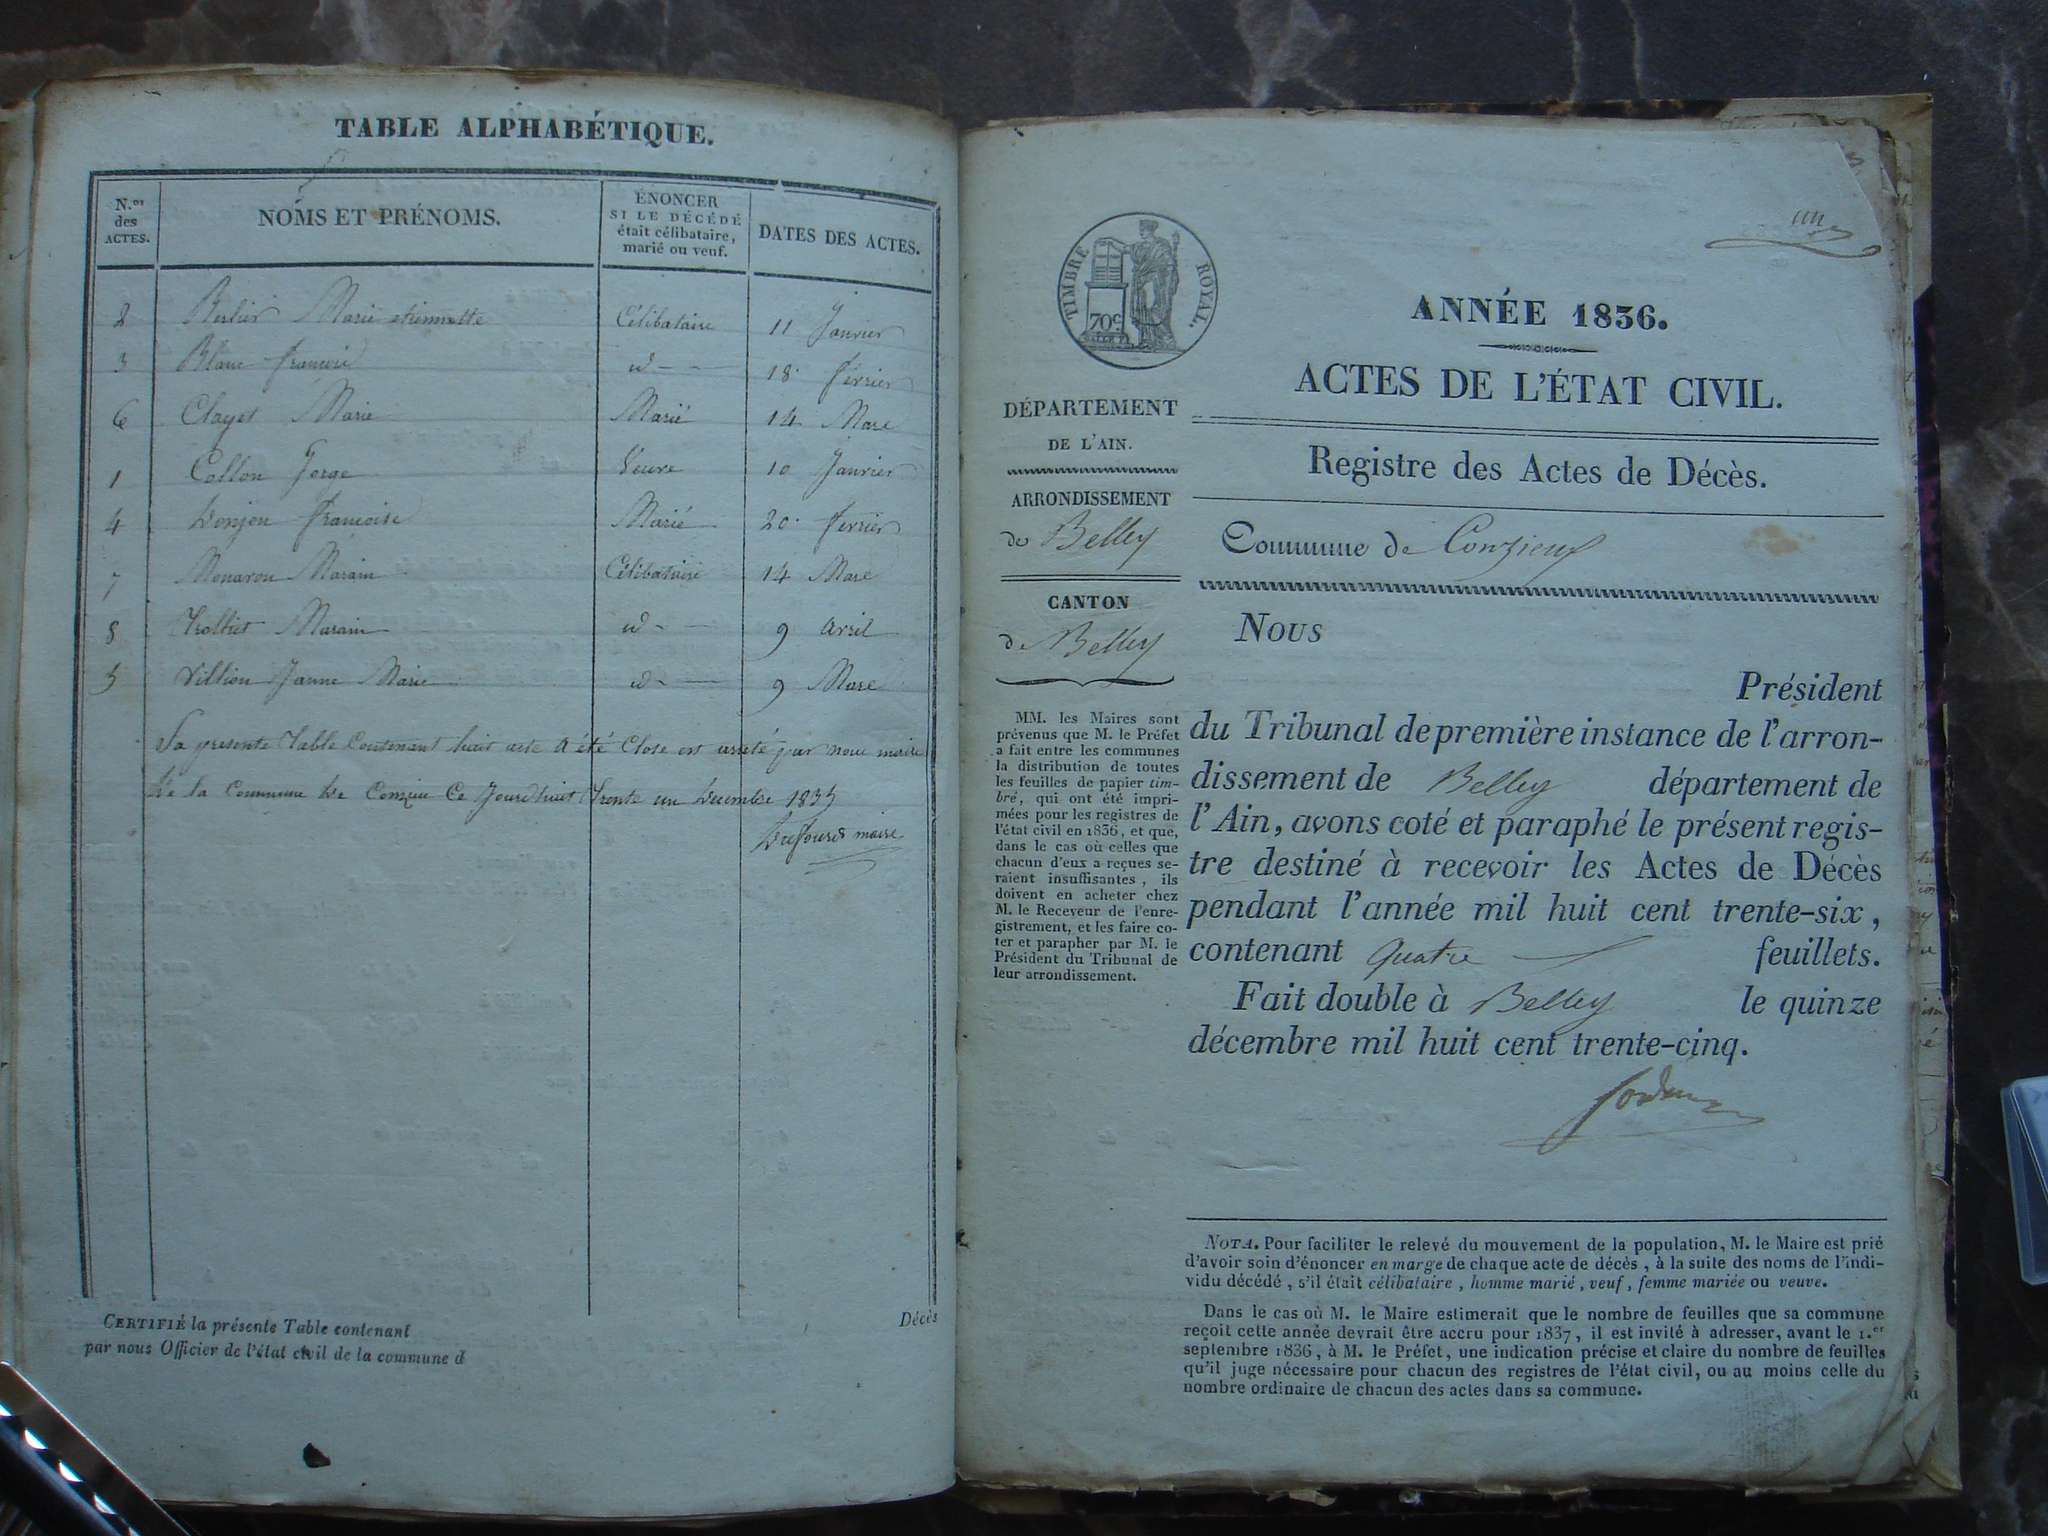 TABLE ALPHABÉTIQUE.
N.os des ACTES.
NOMS ET PRÉNOMS.
ÉNONCER
SI LE DÉCÉDÉ
était célibataire,
marié ou veuf.
DATES DES ACTES.
2 Berlier Marie etiennette Célibataire 11 Janvier
3 Blanc francois id 18 fevrier
6 Clayet Marie Marié 14 Mars
1 Collon Jorge Veuve 10 Janvier
4 Donjon francoise Marié 20 fevrier
7 Monavon Marain Célibataire 14 Mars
8 Trolliet Marain id 9 avril
5 Villion Janne Marie id 9 Mars
La presente Table Contenant huit acte a été Close est arreté par nous maire
De la Commune De Conzieu Ce Jourdhuit trente un Decembre 1835
maire
CERTIFIÉ la présente Table contenant
Décès
par nous Officier de l'état civil de la commune d
TIMBRE ROYAL.
70c.
ANNÉE 1836.
ACTES DE L'ÉTAT CIVIL.
Registre des Actes de Décès.
Commune de Conzieux
DÉPARTEMENT
DE L'AIN.
ARRONDISSEMENT
de Belley
CANTON
de Belley
MM. les Maires sont
prévenus que M. le Préfet
a fait entre les communes
la distribution de toutes
les feuilles de papier tim-
bré, qui ont été impri-
mées pour les registres de
l'état civil en 1836, et que,
dans le cas où celles que
chacun d'eux a reçues se-
raient insuffisantes, ils
doivent en acheter chez
M. le Receveur de l'enre-
gistrement, et les faire co-
ter et parapher par M. le
Président du Tribunal de
leur arrondissement.
Nous
Président
du Tribunal de première instance de l'arron-
dissement de Belley département de
l'Ain, avons coté et paraphé le présent regis-
tre destiné à recevoir les Actes de Décès
pendant l'année mil huit cent trente-six,
contenant quatre feuillets.
Fait double à Belley le quinze
décembre mil huit cent trente-cinq.
NOTA. Pour faciliter le relevé du mouvement de la population, M. le Maire est prié
d'avoir soin d'énoncer en marge de chaque acte de décès, à la suite des noms de l'indi-
vidu décédé, s'il était célibataire, homme marié, veuf, femme mariée ou veuve.
Dans le cas où M. le Maire estimerait que le nombre de feuilles que sa commune
reçoit cette année devrait être accru pour 1837, il est invité à adresser, avant le 1.er
septembre 1836, à M. le Préfet, une indication précise et claire du nombre de feuilles
qu'il juge nécessaire pour chacun des registres de l'état civil, ou au moins celle du
nombre ordinaire de chacun des actes dans sa commune.